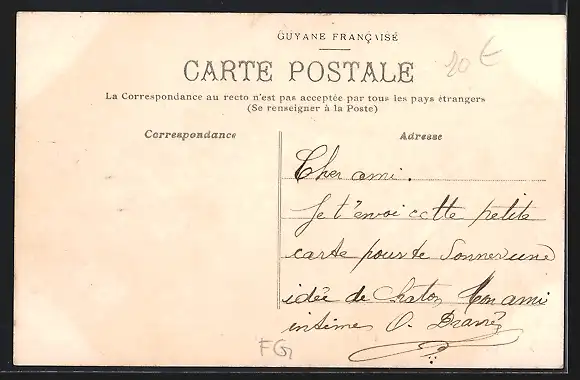 GUYANE FRANÇAISE
20 €
CARTE POSTALE
La Correspondance au recto n'est pas acceptée par tous les pays étrangers
(Se renseigner à la Poste)
Correspondance
Adresse
Cher ami.
Je t'envoi cette petite
carte pour te donner une
idée de ton ami
intime O.
FG